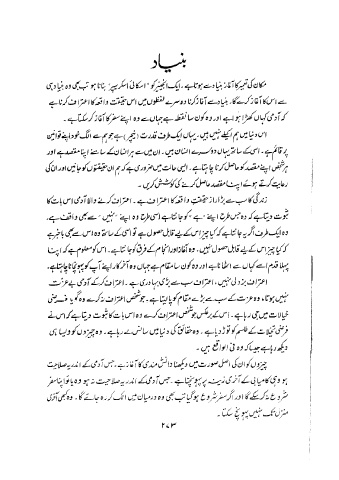 بنیاد
مکان کی تعمیر کا آغاز بنیاد سے ہوتا ہے۔ ایک انجینئر کو "اسکائی اسکریپر" بنانا ہو تب بھی وہ بنیاد ہی
سے اس کا آغاز کرے گا۔ بنیاد سے آغاز کرنا دوسرے لفظوں میں اس حقیقتِ واقعہ کا اعتراف کرنا ہے
کہ آدمی کہاں کھڑا ہوا ہے اور وہ کون سا نقطہ ہے جہاں سے وہ اپنے سفر کا آغاز کر سکتا ہے۔
اس دنیا میں ہم اکیلے نہیں ہیں۔ یہاں ایک طرف قدرت (نیچر) ہے جو ہم سے الگ خود اپنے قوانین
پر قائم ہے۔ اسی کے ساتھ یہاں دوسرے انسان ہیں۔ ان میں سے ہر انسان کے سامنے اپنا مقصد ہے اور
ہر شخص اپنے مقصد کو حاصل کرنا چاہتا ہے۔ ایسی حالت میں ضروری ہے کہ ہم ان حقیقتوں کو جانیں اور ان کی
رعایت کرتے ہوئے اپنا مقصد حاصل کرنے کی کوشش کریں۔
زندگی کا سب سے بڑا راز حقیقتِ واقعہ کا اعتراف ہے۔ اعتراف کرنے والا آدمی اس بات کا
ثبوت دیتا ہے کہ وہ جس طرح اپنے "ہے" کو جانتا ہے اسی طرح وہ اپنے "نہیں" سے بھی واقف ہے۔
وہ ایک طرف اگر یہ جانتا ہے کہ کیا چیز اس کے لیے قابل حصول ہے تو اسی کے ساتھ وہ اس سے بھی باخبر ہے
کہ کیا چیز اس کے لیے قابل حصول نہیں۔ وہ آغاز اور انجام کے فرق کو جانتا ہے۔ اس کو معلوم ہے کہ اپنا
پہلا قدم اسے کہاں سے اٹھانا ہے اور وہ کون سا مقام ہے جہاں وہ آخر کار اپنے آپ کو پہونچانا چاہتا ہے۔
اعتراف بزدلی نہیں، اعتراف سب سے بڑی بہادری ہے۔ اعتراف کر کے آدمی بے عزت
نہیں ہوتا، وہ عزت کے سب سے بڑے مقام کو پالیتا ہے۔ جو شخص اعتراف نہ کرے وہ گویا فرضی
خیالات میں جی رہا ہے۔ اس کے برعکس جو شخص اعتراف کرے وہ اس بات کا ثبوت دیتا ہے کہ اس نے
فرضی تخیلات کے طلسم کو توڑ دیا ہے۔ وہ حقائق کی دنیا میں سانس لے رہا ہے۔ وہ چیزوں کو ویسا ہی
دیکھ رہا ہے جیسا کہ وہ فی الواقع ہیں۔
چیزوں کو ان کی اصل صورت میں دیکھنا دانش مندی کا آغاز ہے۔ جس آدمی کے اندر یہ صلاحیت
ہو وہی کامیابی کے آخری زینہ پر پہونچتا ہے۔ جس آدمی کے اندر یہ صلاحیت نہ ہو وہ یا تو اپنا سفر
شروع نہ کر سکے گا اور اگر سفر شروع ہو گیا تب بھی وہ درمیان میں اٹک کر رہ جائے گا۔ وہ کبھی آخری
منزل تک نہیں پہونچ سکتا۔
۲۷۳